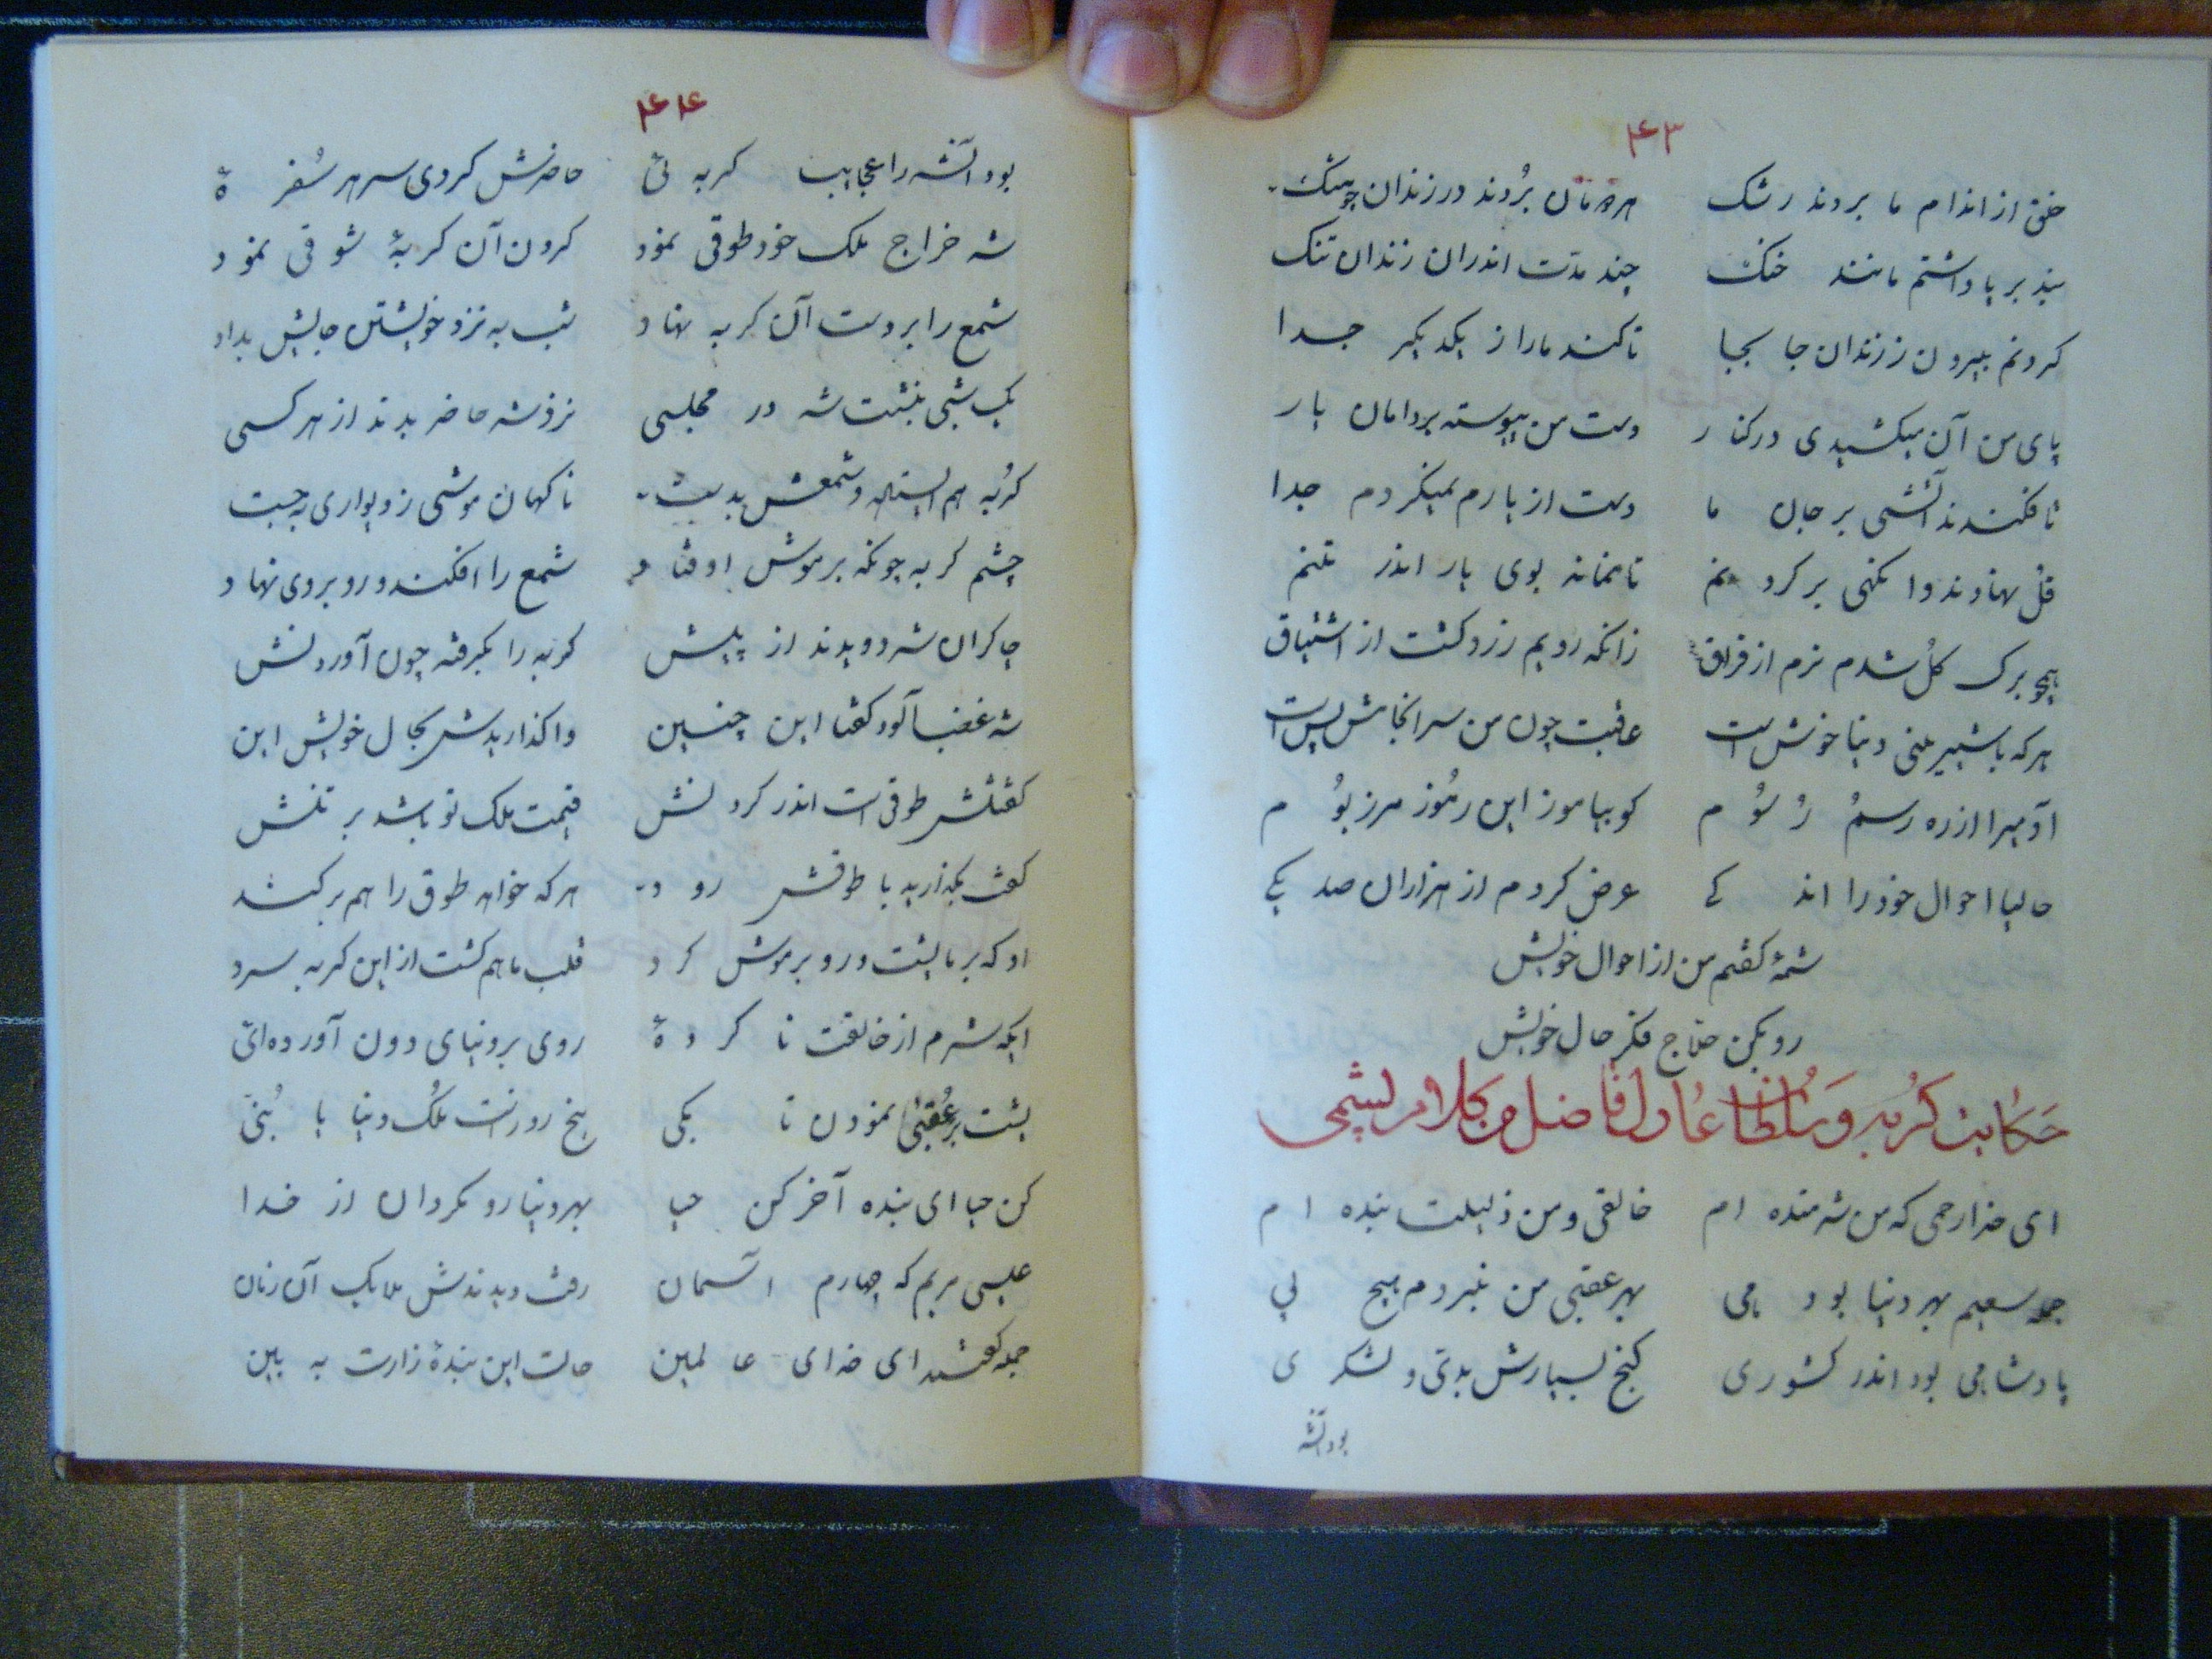 ۴۳
خلق از اندام ما بردند رشک هردمان بُردند در زندان چو سک
بند بر پا داشتم مانند خنک چند مدت اندران زندان تنک
کردنم بیرون ززندان جا بجا تا کنند مارا ز یکدیکر جدا
پای من آن میکشیدی در کنار دست من پیوسته بر دامان یار
تا فکندند آتشی بر جان ما دست از یارم نمیکردم جدا
قل نهادند و بر کردنم تا نماند بوی یار اندر تنم
همچو برک کل شدم نرم از فراق زانکه رویم زرد کشت از اشتیاق
هرکه با شیرینی دنیا خوش است عاقبت چون من سرانجامش پس است
از ره رسم رُسُوم کو بیاموز این رمُوز مرز بوُم
حالیا احوال خود را اندکے عرض کردم از هزاران صد یکے
شمهٔ کفتم من از احوال خویش
رو بکن حلاج فکر حال خویش
حکایت کُربه و سُلطان عُادل فاضل من کلام پشمی
ای خدا رحمی که من شرمنده ام خالقی و من ذلیلت بنده ام
جمله سعیم بهر دنیا بود می بهر عقبی من نبردم هیچ پی
پادشاهی بود اندر کشوری کنج بسیارش بدی و لشکری
بود آنشه
۴۴
بود آنشه را عجایب کربه ئی حاضرش کردی سر هر سُفرهٔ
شه خراج ملک خود طوقی نمود کردن آن کربهٔ شوقی نمود
شمع را بر دست آن کربه نهاد شب به نزد خویشتن جایش بداد
یک شبی بنشست شه در مجلسی نزد شه حاضر بدند از هر کسی
کُربه هم استاده و شمعش بدست ناکهان موشی ز دیواری بجست
چشم کربه چونکه بر موش اوفتاد شمع را افکند و رو بروی نهاد
چاکران شه دویدند از پیش کربه را بکرفته چون آوردنش
شه غضب آلود کفتا این چنین واکذاریدش بحال خویش این
کفتنش طوقی است اندر کردنش قیمت ملک تو باشد بر تنش
کفت بکذارید با طوقش رود هر که خواهد طوق را هم برکشد
او که بر ما پشت و رو بر موش کرد قلب ما هم کشت از این کربه سرد
ایکه شرم از خالقت نا کردهٔ روی بر دنیای دون آورده ائی
پشت بر عُقبی نمودن تا بکی پنج روزست مُلک دنیا یا بُنیّ
کن حیا ای بنده آخر کن حیا بهر دنیا رو مکردان از خدا
عیسی مریم که چهارم اسمان رفت دیدندش ملایک آن زمان
جمله کفتند ای خدای عالمین حالت این بندهٔ زارت به بین